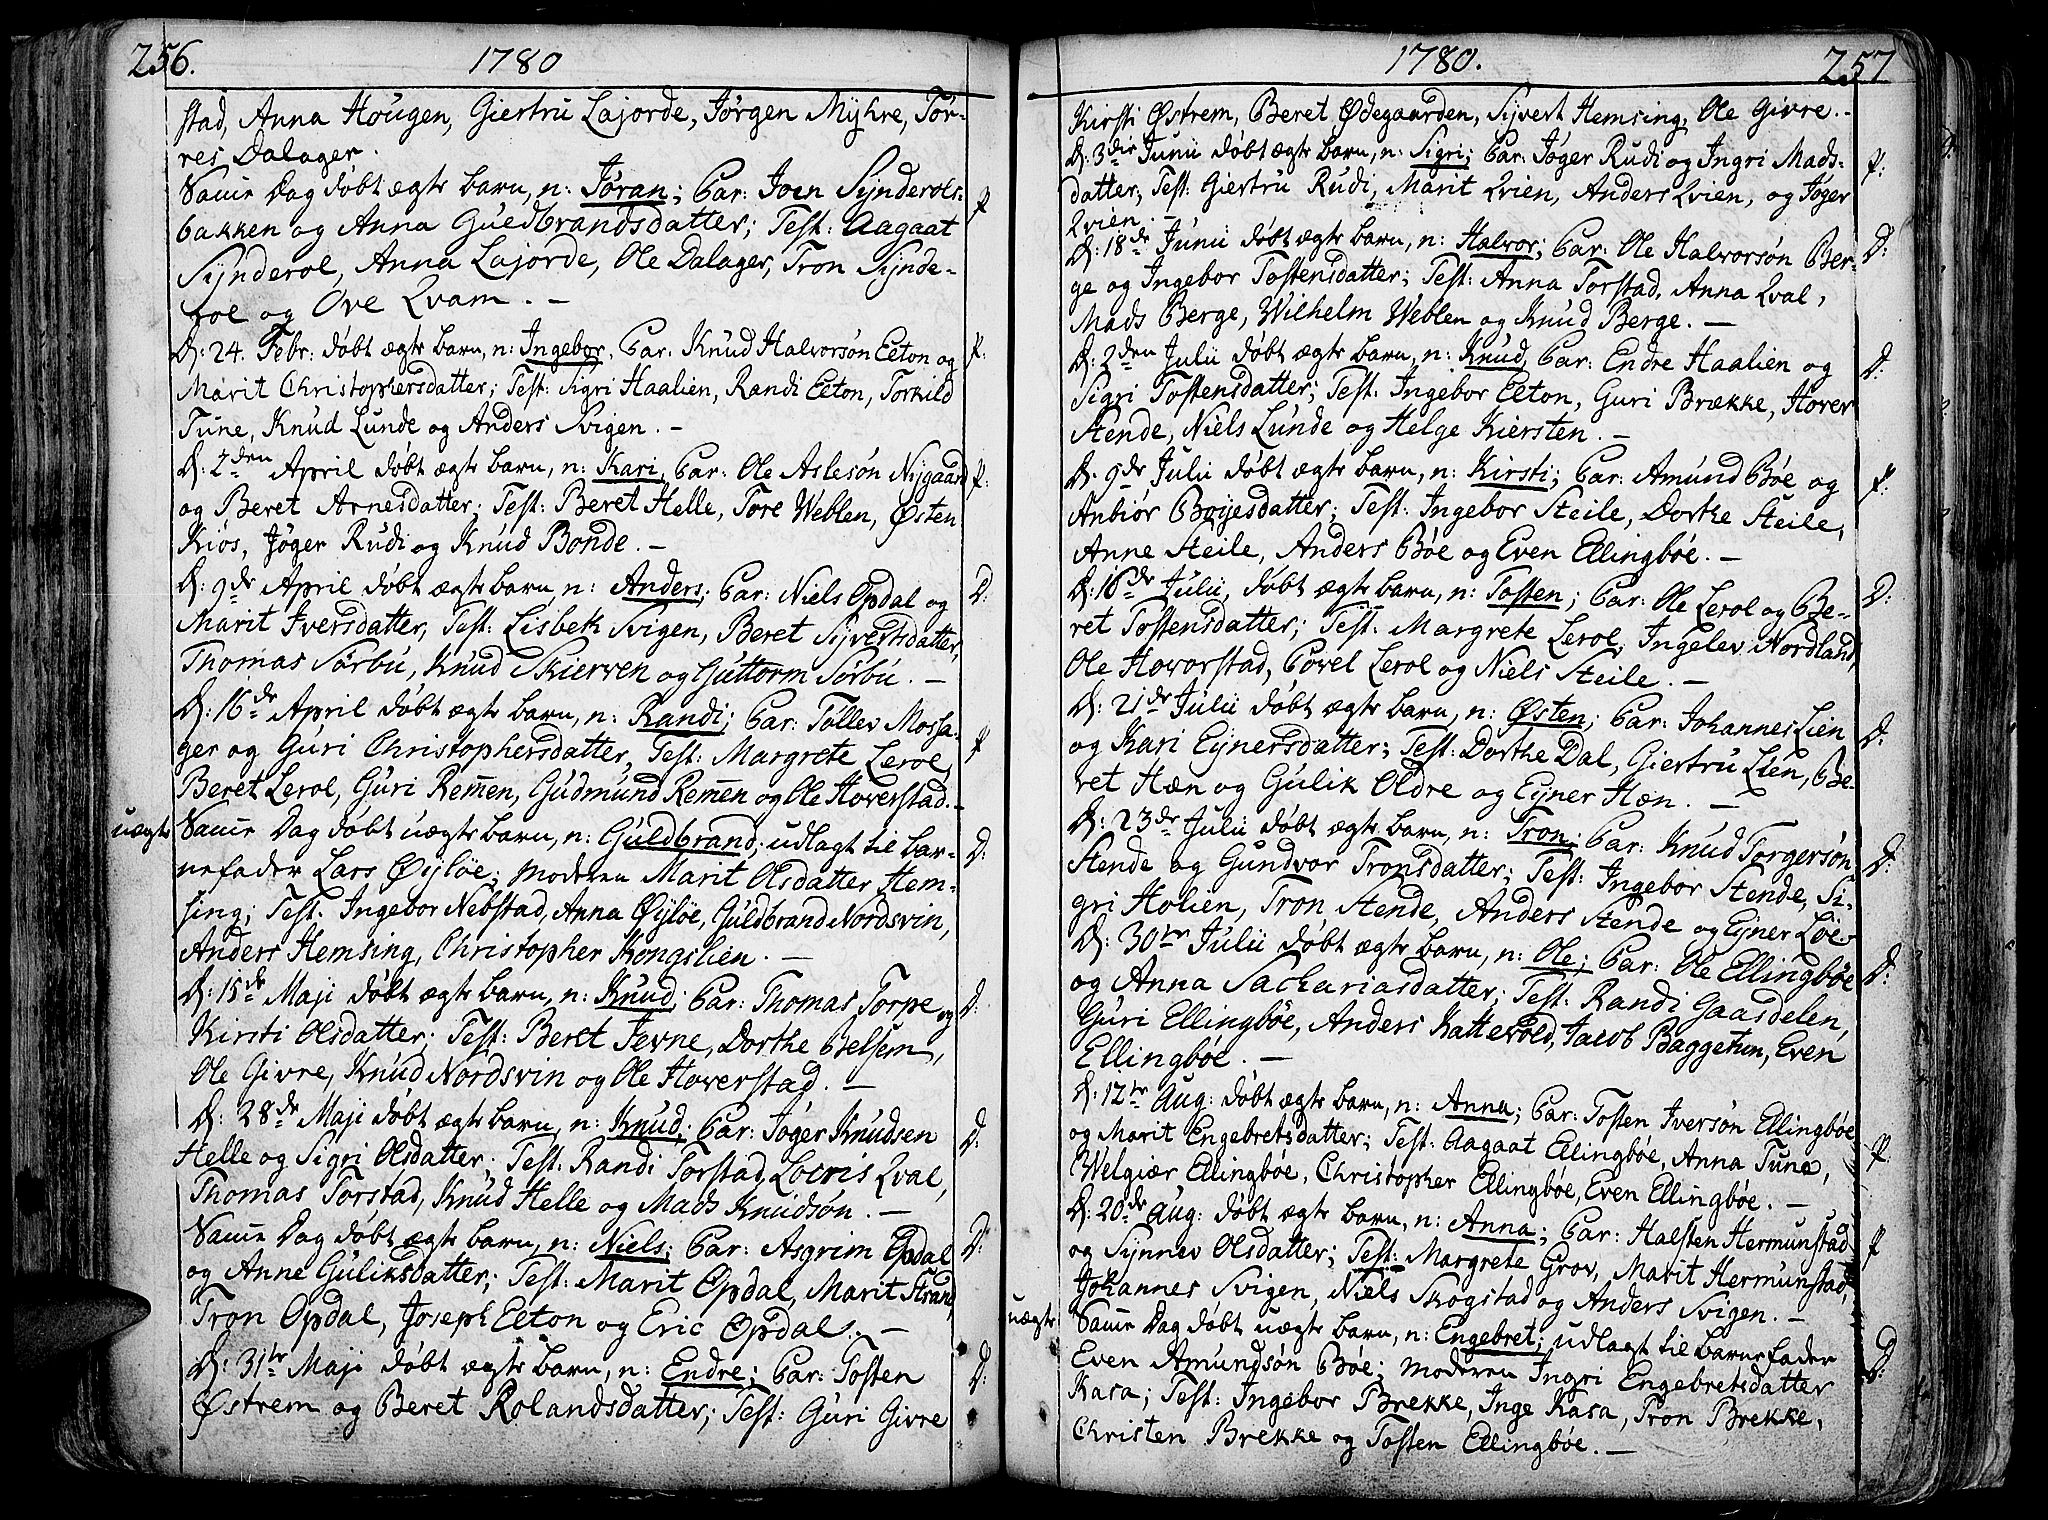 256. 1780
stad, Anna Hougen, Giertru Lajorde, Jørgen Myhre, Tør-
res Dalager.
Same Dag døbt ægte barn, n: Jøran; Par: Joen Synderols- f
bakken og Anna Guldbrandsdatter; Test: Aagaat
Synderol, Anna Lajorde, Ole Dalager, Tron Synde-
rol og Ove Qvam. —
D: 24. Febr: døbt ægte barn, n: Ingebor, Par: Knud Halvorsøn Eeton og f:
Marit Christophersdatter; Test: Sigri Haalien, Randi Eeton, Torkild
Tune, Knud Lunde og Anders Svigen. —
D: 2den April døbt ægte barn, n: Kari, Par: Ole Aslesøn Nygaard f:
og Beret Arnesdatter; Test: Beret Helle, Tore Weblen, Østen
Kiøs, Jøger Rudi og Knud Bonde. —
D: 9de April døbt ægte barn, n: Anders; Par: Niels Opdal og D:
Marit Iversdatter, Test: Lisbeth Svigen, Beret Syvertsdatter,
Thomas Sørbu, Knud Skierven og Guttorm Sørbu. —
D: 16de April døbt ægte barn, n: Randi; Par: Tollev Mossa-
ger og Guri Christophersdatter, Test: Margrete Lerol, f
Beret Lerol, Guri Remen, Gudmund Remen og Ole Hoverstad. —
uægte Same Dag døbt uægte barn, n: Guldbrand; udlagt til bar- D:
nefader Lars Øyløe; moderen Marit Olsdatter Hem-
sing; Test: Ingebor Nebstad, Anna Øyløe, Guldbrand Nordsvin,
Anders Hemsing, Christopher Kongslien. —
D: 15de Maji døbt ægte barn, n: Knud; Par: Thomas Torpe og D:
Kirsti Olsdatter; Test: Beret Jevne, Dorthe Belsem,
Ole Givre, Knud Nordsvin og Ole Hoverstad. —
D: 28de Maji døbt ægte barn, n: Knud; Par: Jøger Knudsen D:
Helle og Sigri Olsdatter; Test: Randi Torstad, Locris Qval,
Thomas Torstad, Knud Helle og Mads Knudsøn. —
Same Dag døbt ægte barn, n: Niels; Par: Asgrim Opdal D:
og Anne Guliksdatter; Test: Marit Opdal, Marit Strand,
Tron Opdal, Joseph Eeton og Eric Opdal. —
D: 31te Maji døbt ægte barn, n: Endre; Par: Tosten D:
Østrem og Beret Rolandsdatter; Test: Guri Givre
1780. 257
Kirsti Østrem, Beret Ødegaarden, Syvert Hemsing, Ole Givre. —
D: 3die Junii døbt ægte barn, n: Sigri; Par: Jøger Rudi og Ingri Mads- f:
datter; Test: Giertru Rudi, Marit Qvien, Anders Qvien, og Jøger
Qvien. —
D: 18de Junii døbt ægte barn, n: Halvor; Par: Ole Halvorsøn Ber- D:
ge og Ingebor Tostensdatter; Test: Anna Torstad, Anna Qval,
Mads Berge, Wilhelm Weblen og Knud Berge. —
D: 2den Julii døbt ægte barn, n: Knud, Par: Endre Haalien og D:
Sigri Tostensdatter; Test: Ingebor Eeton, Guri Brække, Hover
Stende, Niels Lunde og Helge Kiersten. —
D: 9de Julii døbt ægte barn, n: Kirsti; Par: Amund Bøe og f:
Anbiør Boyesdatter; Test: Ingebor Steile, Dorthe Steile,
Anne Steile, Anders Bøe og Even Ellingbøe. —
D: 16de Julii, døbt ægte barn, n: Tosten; Par: Ole Lerol og Be- D:
ret Tostensdatter; Test: Margrete Lerol, Ingelev Nordland,
Ole Hovorstad, Povel Lerol og Niels Steile. —
D: 21de Julii døbt ægte barn, n: Østen; Par: Johannes Lien D:
og Kari Eynersdatter; Test: Dorthe Dal, Giertru Lien, Be-
ret Hæn og Gulik Oldre og Eyner Hæn. —
D: 23de Julii døbt ægte barn, n: Tron; Par: Knud Torgersøn
Stende og Gundvor Tronsdatter; Test: Ingebor Stende, Si- D:
gri Holien, Tron Stende, Anders Stende og Eyner Løe.
D: 30te Julii døbt ægte barn, n: Ole; Par: Ole Ellingbøe D:
og Anna Sachariasdatter; Test: Randi Gaasdelen,
Guri Ellingbøe, Anders Kattevold, Jacob Baggetun, Even
Ellingbøe. —
D: 12te Aug: døbt ægte barn, n: Anna; Par: Tosten Iversøn Ellingbøe
og Marit Engebretsdatter; Test: Aagaat Ellingbøe, Anna Tune, f.
Welgiær Ellingbøe, Christopher Ellingbøe, Even Ellingbøe. —
D: 20de Aug: døbt ægte barn, n: Anna; Par: Halsten Hermunstad
og Synnev Olsdatter; Test: Margrete Grov, Marit Hermunstad, f
Johannes Svigen, Niels Skogstad og Anders Svigen. —
uægte Same Dag døbt uægte barn, n: Engebret; udlagt til barnefader
Even Amundsøn Bøe; moderen Ingri Engebretsdatter D:
Kasa; Test: Ingebor Brekke, Inge Kasa, Tron Brekke,
Christen Brekke og Tosten Ellingbøe. —